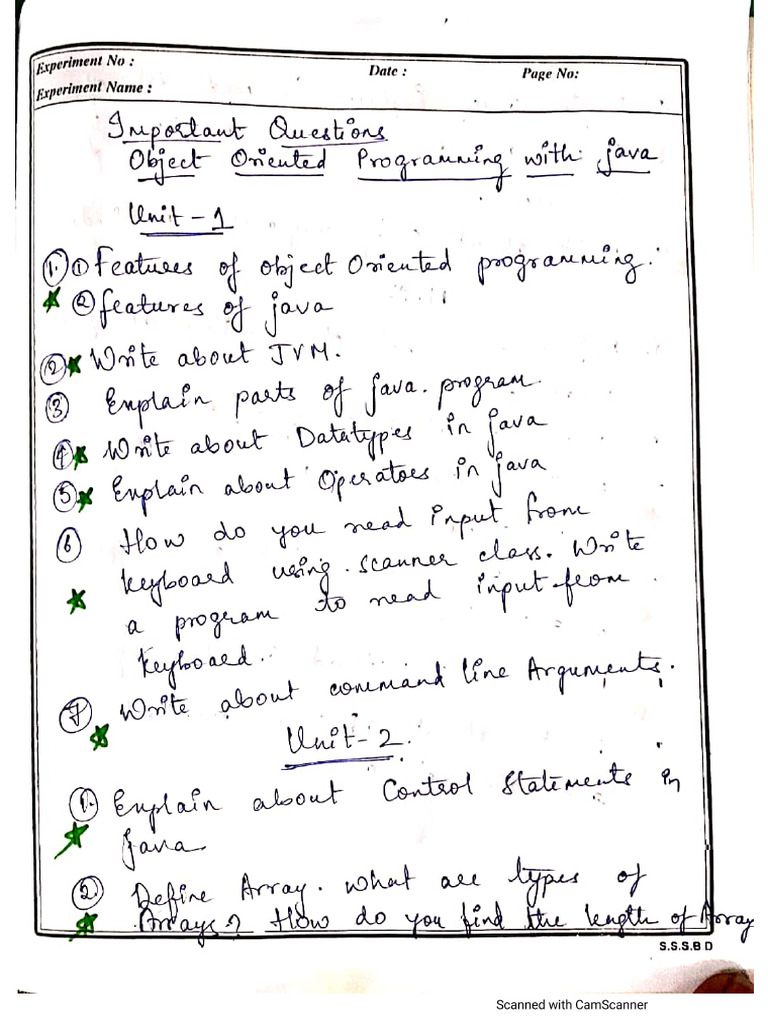 Experiment No :
Date :
Page No:
Experiment Name :
Important Questions
Object Oriented Programming with java
Unit - 1
1. ① Features of object Oriented programming.
② features of java
② Write about JVM.
③ Explain parts of java program.
④ Write about Datatypes in java
⑤ Explain about Operators in java
⑥ How do you read input from
keyboard using scanner class. Write
a program to read input from
keyboard.
⑦ Write about command line Arguments.
Unit - 2.
①. Explain about Control Statements in
java.
②. Define Array. what are types of
Arrays? How do you find the length of Array
S.S.S.B D
Scanned with CamScanner